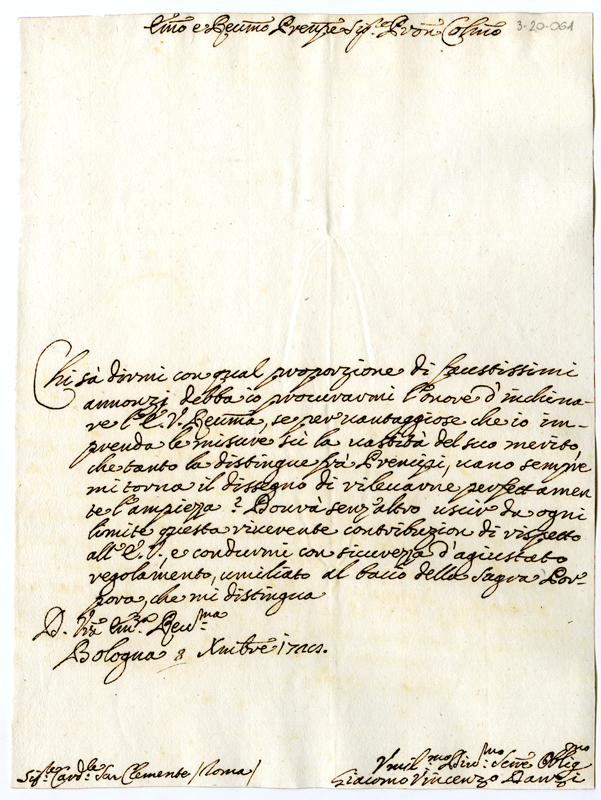 Emo e Reumo Prenpe Sigre Pron Colmo
3-20-061
Chi sà dirmi con qual proporzione di faustissimi
annonzi debba io procurarmi l'onore d'inchina-
re l'E. V. Reuma, se per vantaggiose che io im-
prenda le misure sù la vastità del suo merito,
che tanto la distingue frà Prencipi, vano sempre
mi torna il dissegno di rilevarne perfettamen
te l'ampiezza: Dourà senz'altro uscir da ogni
limite questa riverente contribuzion di rispetto
all'E. V. e condurmi con sicurezza d'agiustato
regolamento, umiliato al bacio della Sagra Por-
pora, che mi distingua
D. Vra Emza Reuma
Bologna 8 Xmbre
Sigre Cardle San Clemente / Roma /
Umilmo Divmo Serre Obligmo
Giacomo Vincenzo